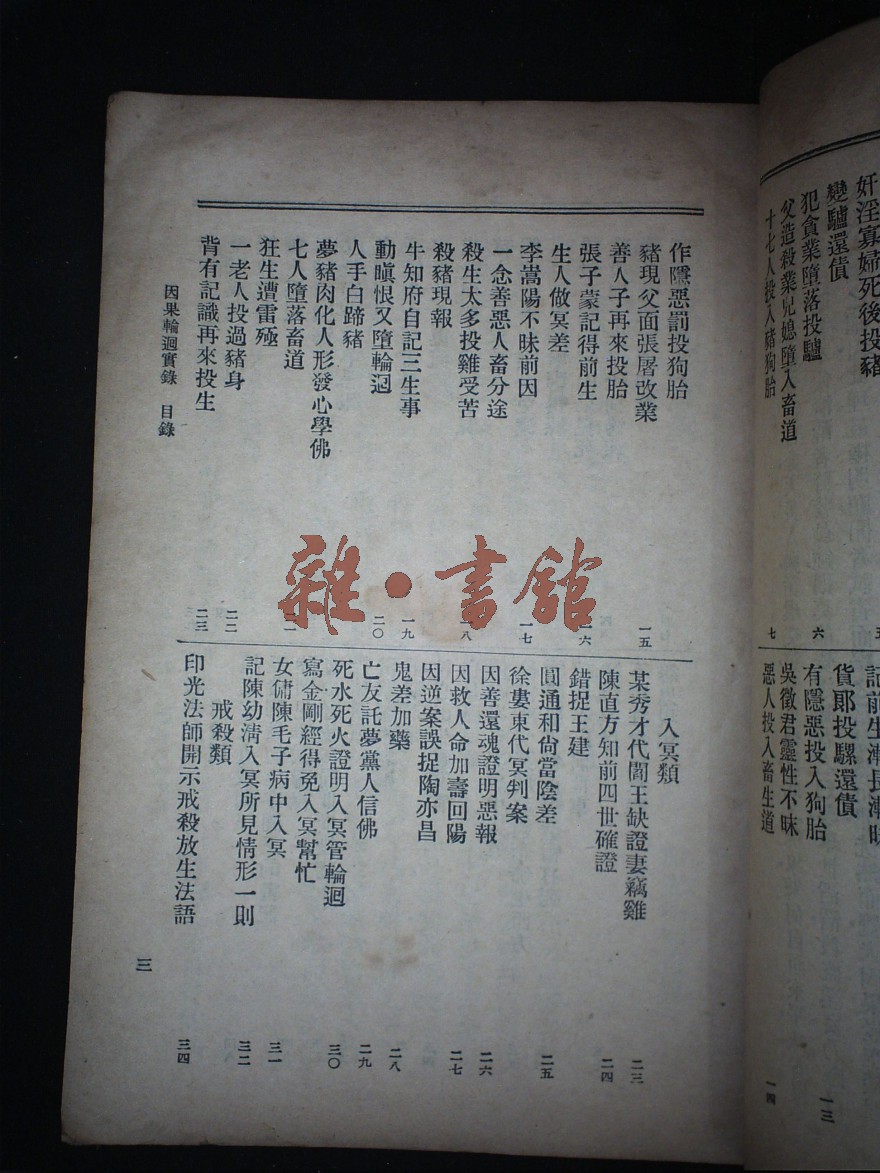 奸淫寡婦死後投豬
變驢還債
犯貪業墮落投驢 六
父造殺業兒媳墮入畜道
十七人投入豬狗胎 七
記前生漸長漸昧
貨郞投騾還債
有隱惡投入狗胎 一三
吳徵君靈性不昧
惡人投入畜生道 一四
作隱惡罰投狗胎
豬現父面張屠改業 一五
善人子再來投胎
張子蒙記得前生 一六
生人做冥差
李嵩陽不昧前因 一七
一念善惡人畜分途
殺生太多投雞受苦 一八
殺豬現報
牛知府自記三生事 一九
動瞋恨又墮輪迴 二〇
人手白蹄豬
夢豬肉化人形發心學佛
七人墮落畜道 二一
狂生遭雷殛
一老人投過豬身 二二
背有記識再來投生 二三
入冥類
某秀才代閻王缺證妻竊雞 二三
陳直方知前四世確證 二四
錯捉王建
圓通和尙當陰差 二五
徐婁東代冥判案
因善還魂證明惡報 二六
因救人命加壽回陽 二七
因逆案誤捉陶亦昌
鬼差加藥 二八
亡友託夢黨人信佛 二九
死水死火證明入冥管輪迴 三〇
寫金剛經得免入冥幫忙
女傭陳毛子病中入冥 三一
記陳幼淸入冥所見情形一則 三二
戒殺類
印光法師開示戒殺放生法語 三四
因果輪迴實錄 目錄
三
雜·書館